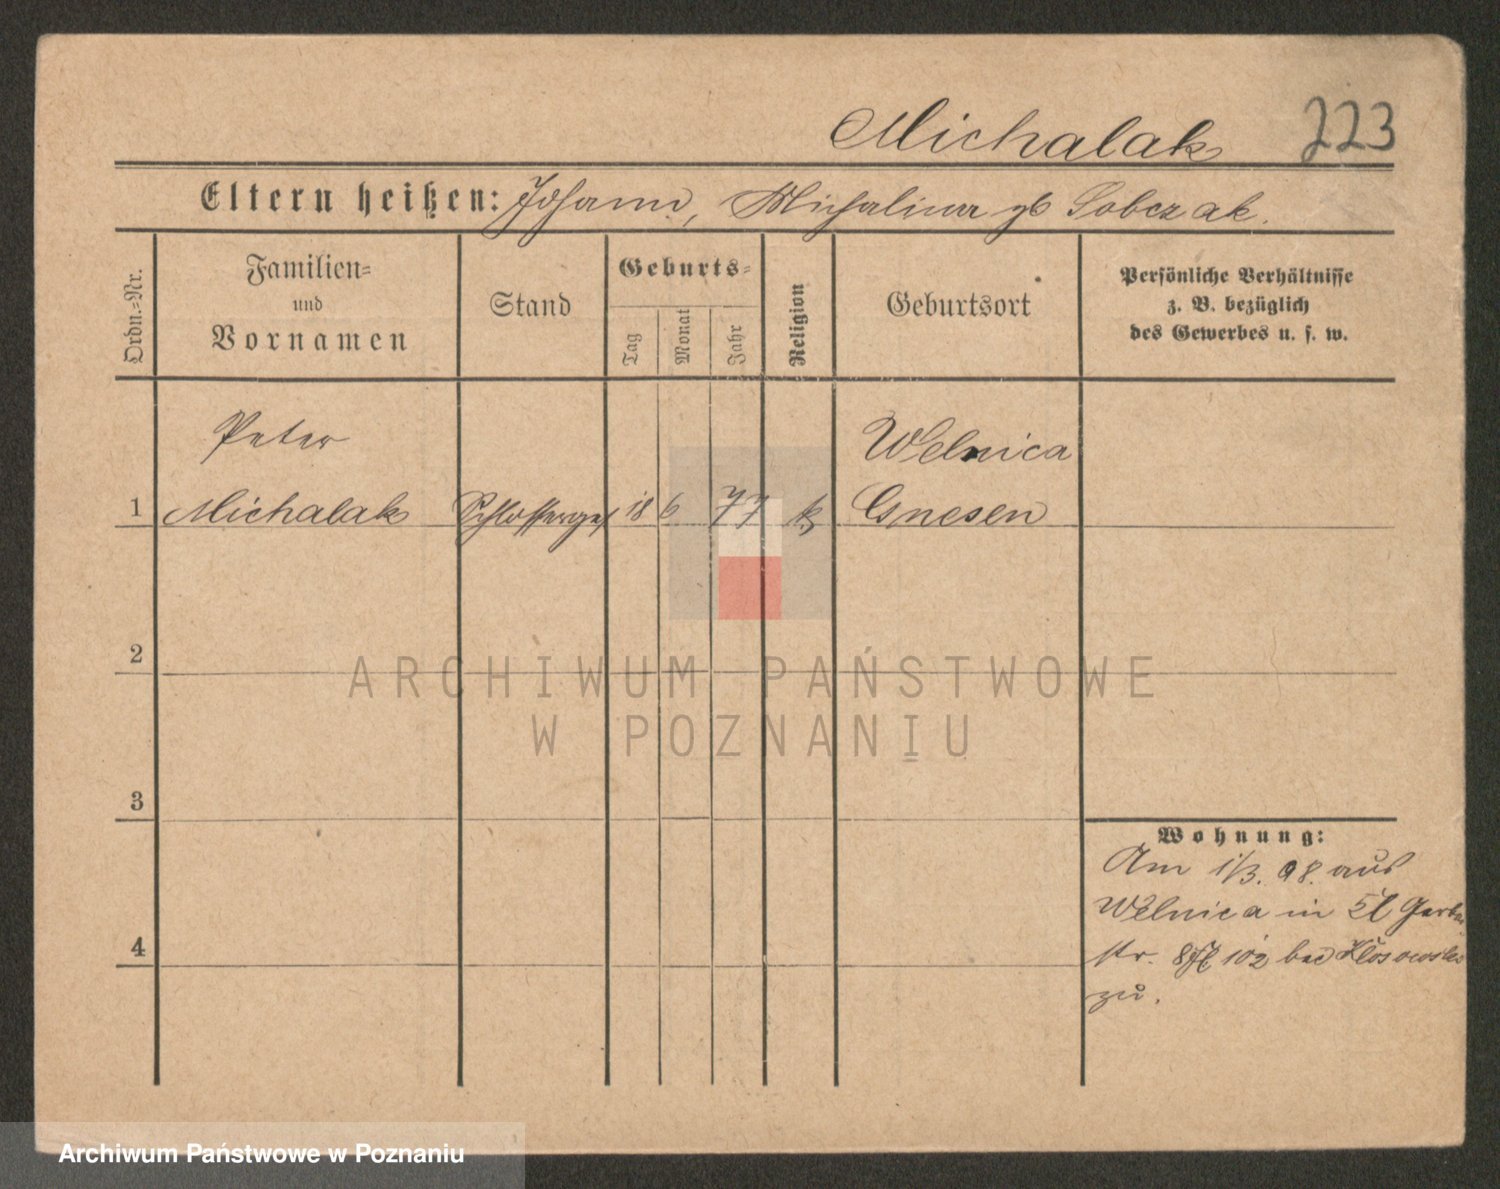 Michalak 223
Eltern heißen: Johann, Michalina gb Sobczak.
Ordn.=Nr.
Familien=
und
Vornamen
Stand
Geburts=
Tag
Monat
Jahr
Religion
Geburtsort
Persönliche Verhältnisse
z. B. bezüglich
des Gewerbes u. s. w.
Peter
Welnica
1 Michalak Schlosserges 18 6 77 k Gnesen
2
3
4
Wohnung:
Am 1/3. 98. aus
Welnica in
str. 102 bei
zu.
ARCHIWUM PAŃSTWOWE
W POZNANIU
Archiwum Państwowe w Poznaniu